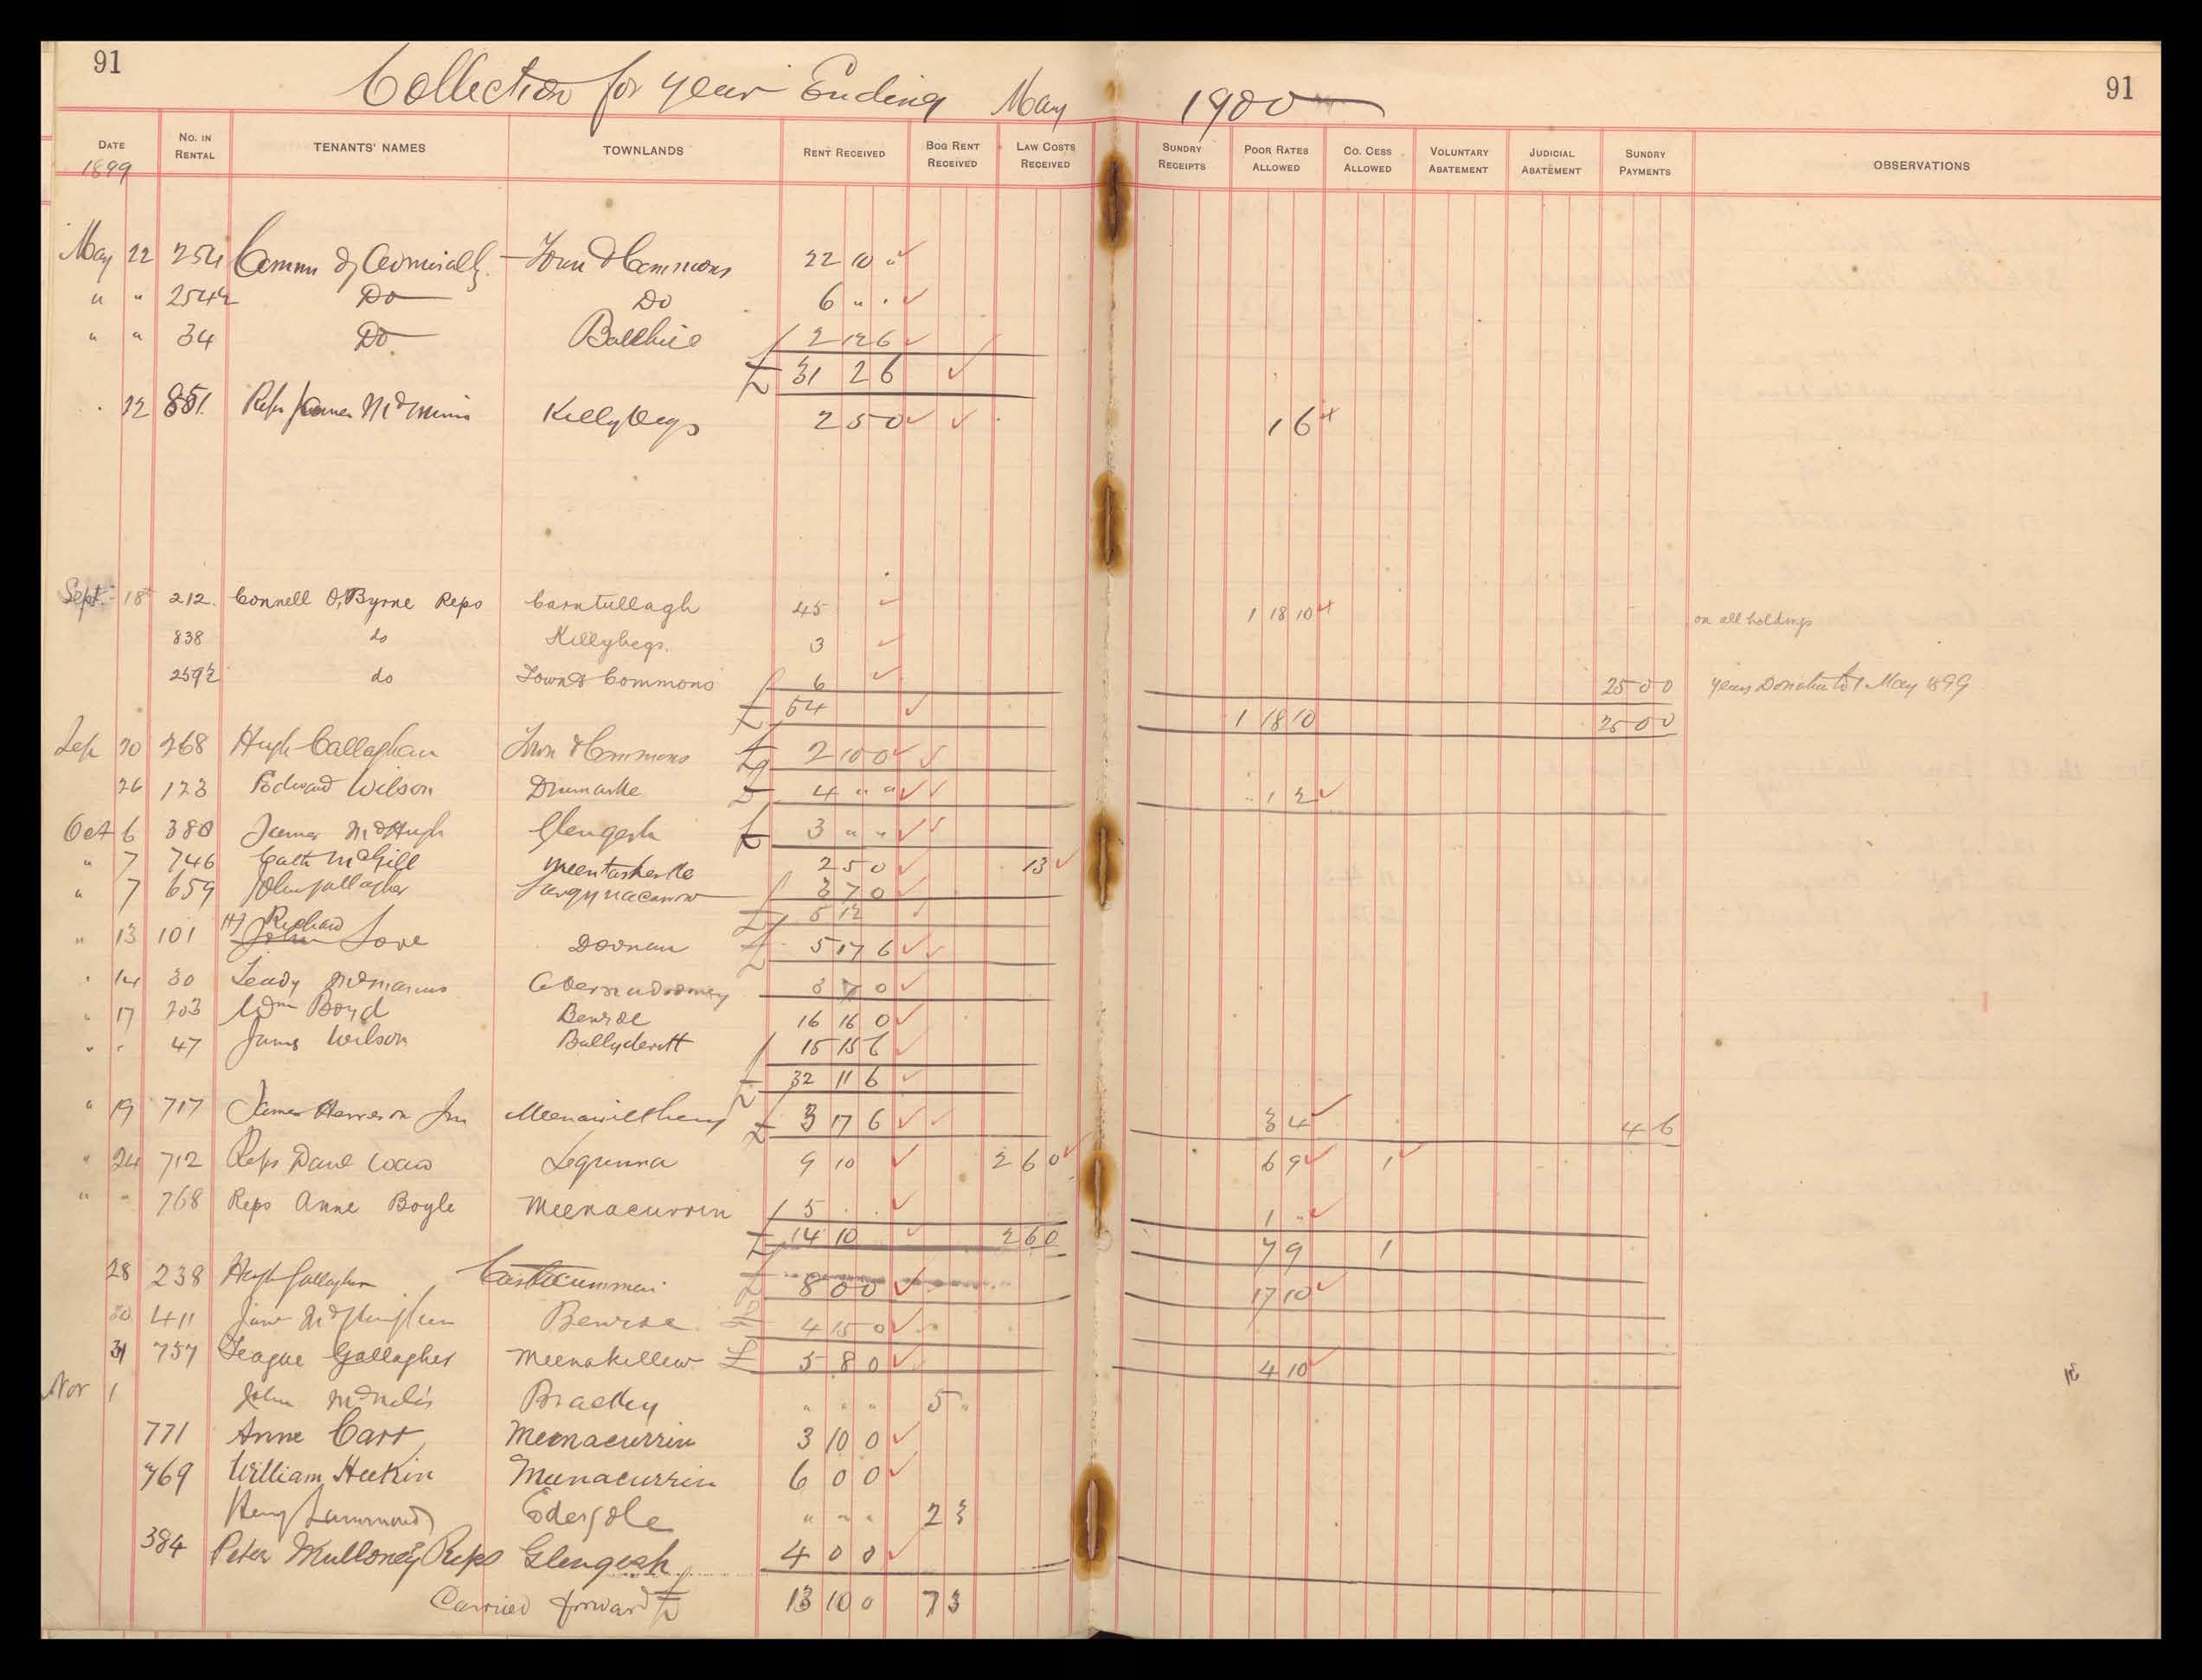 91
91
Collection for year Ending May 1900
DATE
1899
NO. IN RENTAL
TENANTS' NAMES
TOWNLANDS
RENT RECEIVED
BOG RENT RECEIVED
LAW COSTS RECEIVED
SUNDRY RECEIPTS
POOR RATES ALLOWED
CO. CESS ALLOWED
VOLUNTARY ABATEMENT
JUDICIAL ABATEMENT
SUNDRY PAYMENTS
OBSERVATIONS
May 22 254 Town & Commons 22 10 "
" " 254½ Do Do 6 " "
" " 34 Do 2 12 6
£ 31 2 6
" 22 851 Reps James Killybegs 2 5 0 1 6
Sept 18 212 Connell O'Byrne Reps Carntullagh 45 1 18 10 on all holdings
838 do Killybegs. 3
259½ do Town & Commons 6 25 0 0 years Donation to 1 May 1899
£ 54 1 18 10 25 0 0
Sep 20 268 Hugh Callaghan Town & Commons £ 2 10 0
26 123 Edward Wilson £ 4 " " 1 2
Oct 6 380 James McHugh Glengesh £ 3 " "
" 7 746 Cath McGill Meentashesk 2 5 0 13
" 7 659 John Gallagher Largynacarrow 3 7 0
£ 5 12
" 13 101 Richard John Love Doonan £ 5 17 6
" 14 30 Teady McManus 3 7 0
" 17 203 Wm Boyd Benroe 16 16 0
" " 47 James Wilson Ballydevitt 15 15 6
£ 32 11 6
" 19 717 James Jnr £ 3 17 6 3 4 4 6
" 24 712 Reps Legunna 9 10 2 6 0 6 9 1
" " 768 Reps Anne Boyle Meenacurrin 5 1 "
£ 14 10 2 6 0 7 9 1
28 238 Hugh Gallagher £ 8 0 0 17 10
30 411 Benroe £ 4 15 0
31 757 Teague Gallagher Meenakillew £ 5 8 0 4 10
Nov 1 John McNelis Brackey " " " 5 "
771 Anne Carr Meenacurrin 3 10 0
769 William Heekin Meenacurrin 6 0 0
Hammond Edergole " " " 2 3
384 Peter Mulloney Reps Glengesh 4 0 0
Carried forward £ 13 10 0 7 3